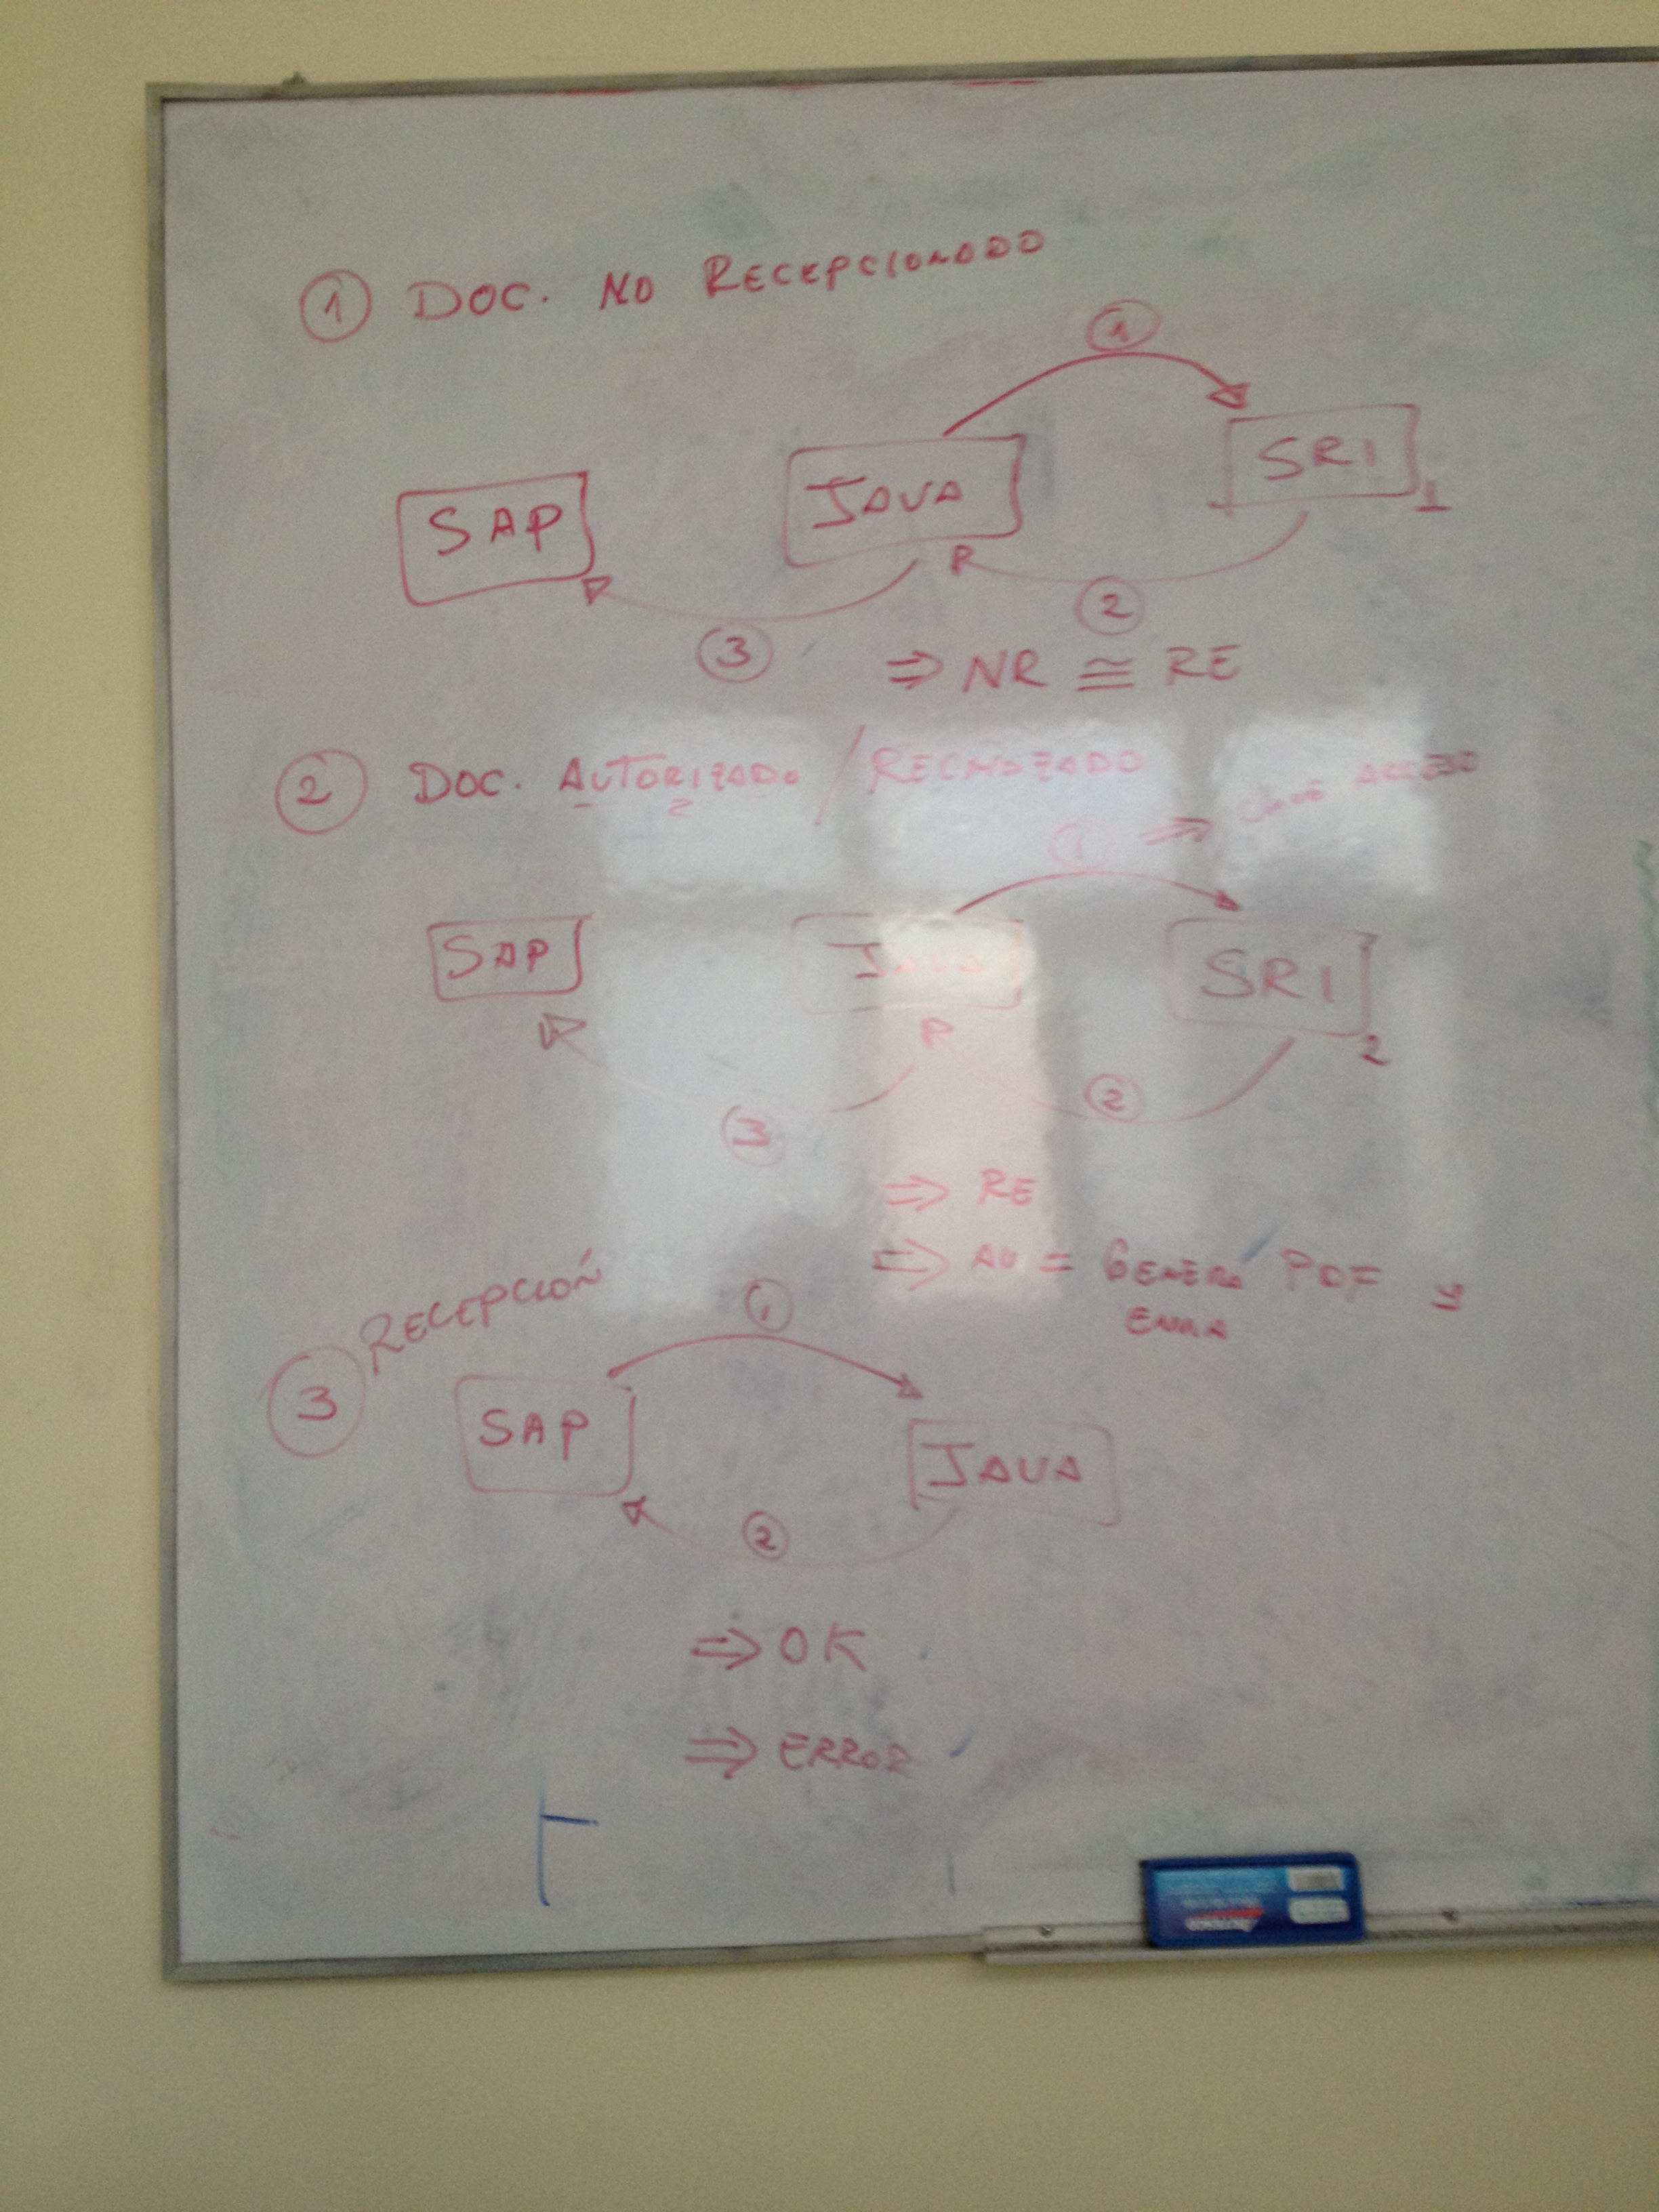 1 DOC. NO RECEPCIONADO
1
SAP JAVA SRI 1
3 2
⇒ NR ≅ RE
2 DOC. AUTORIZADO / RECHAZADO
1 ⇒ CLAVE ACCESO
SAP JAVA SRI 2
3 2
⇒ RE
⇒ AU = GENERA PDF y
ENVIA
3 RECEPCIÓN
1
SAP JAVA
2
⇒ OK
⇒ ERROR